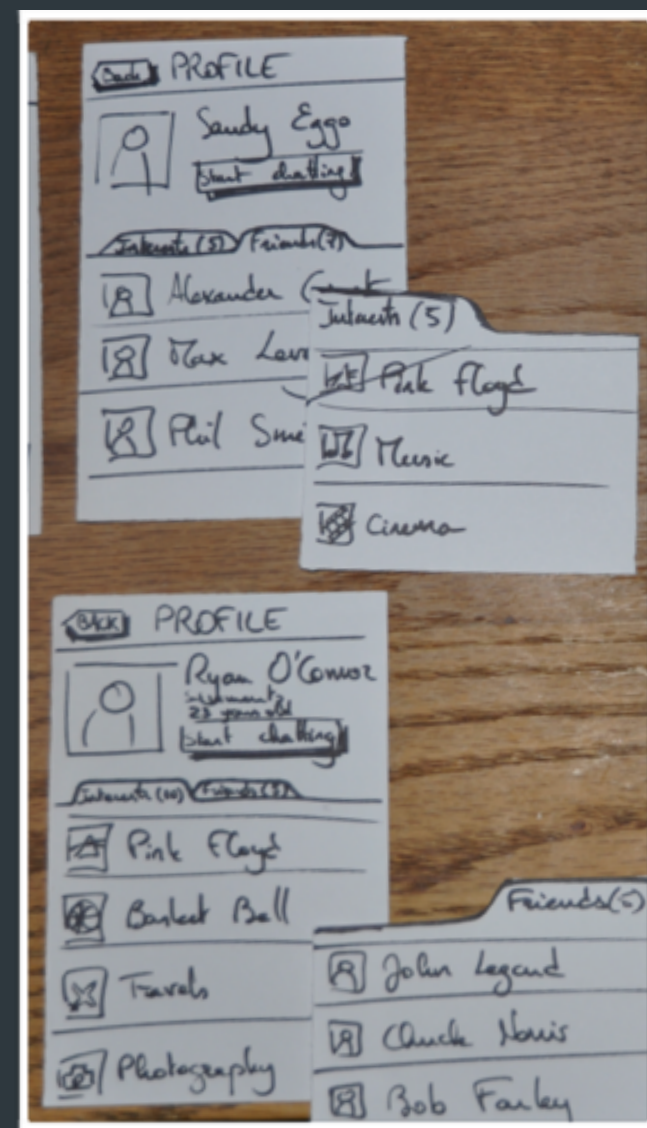 Back PROFILE
Sandy Eggo
Start chatting
Interests (5) Friends (7)
Alexander
Max
Phil
Interests (5)
Pink Floyd
Music
Cinema
Back PROFILE
Ryan O'Connor
23 years old
Start chatting
Interests (10) Friends (5)
Pink Floyd
Basket Ball
Travels
Photography
Friends (5)
John Legend
Chuck Norris
Bob Farley